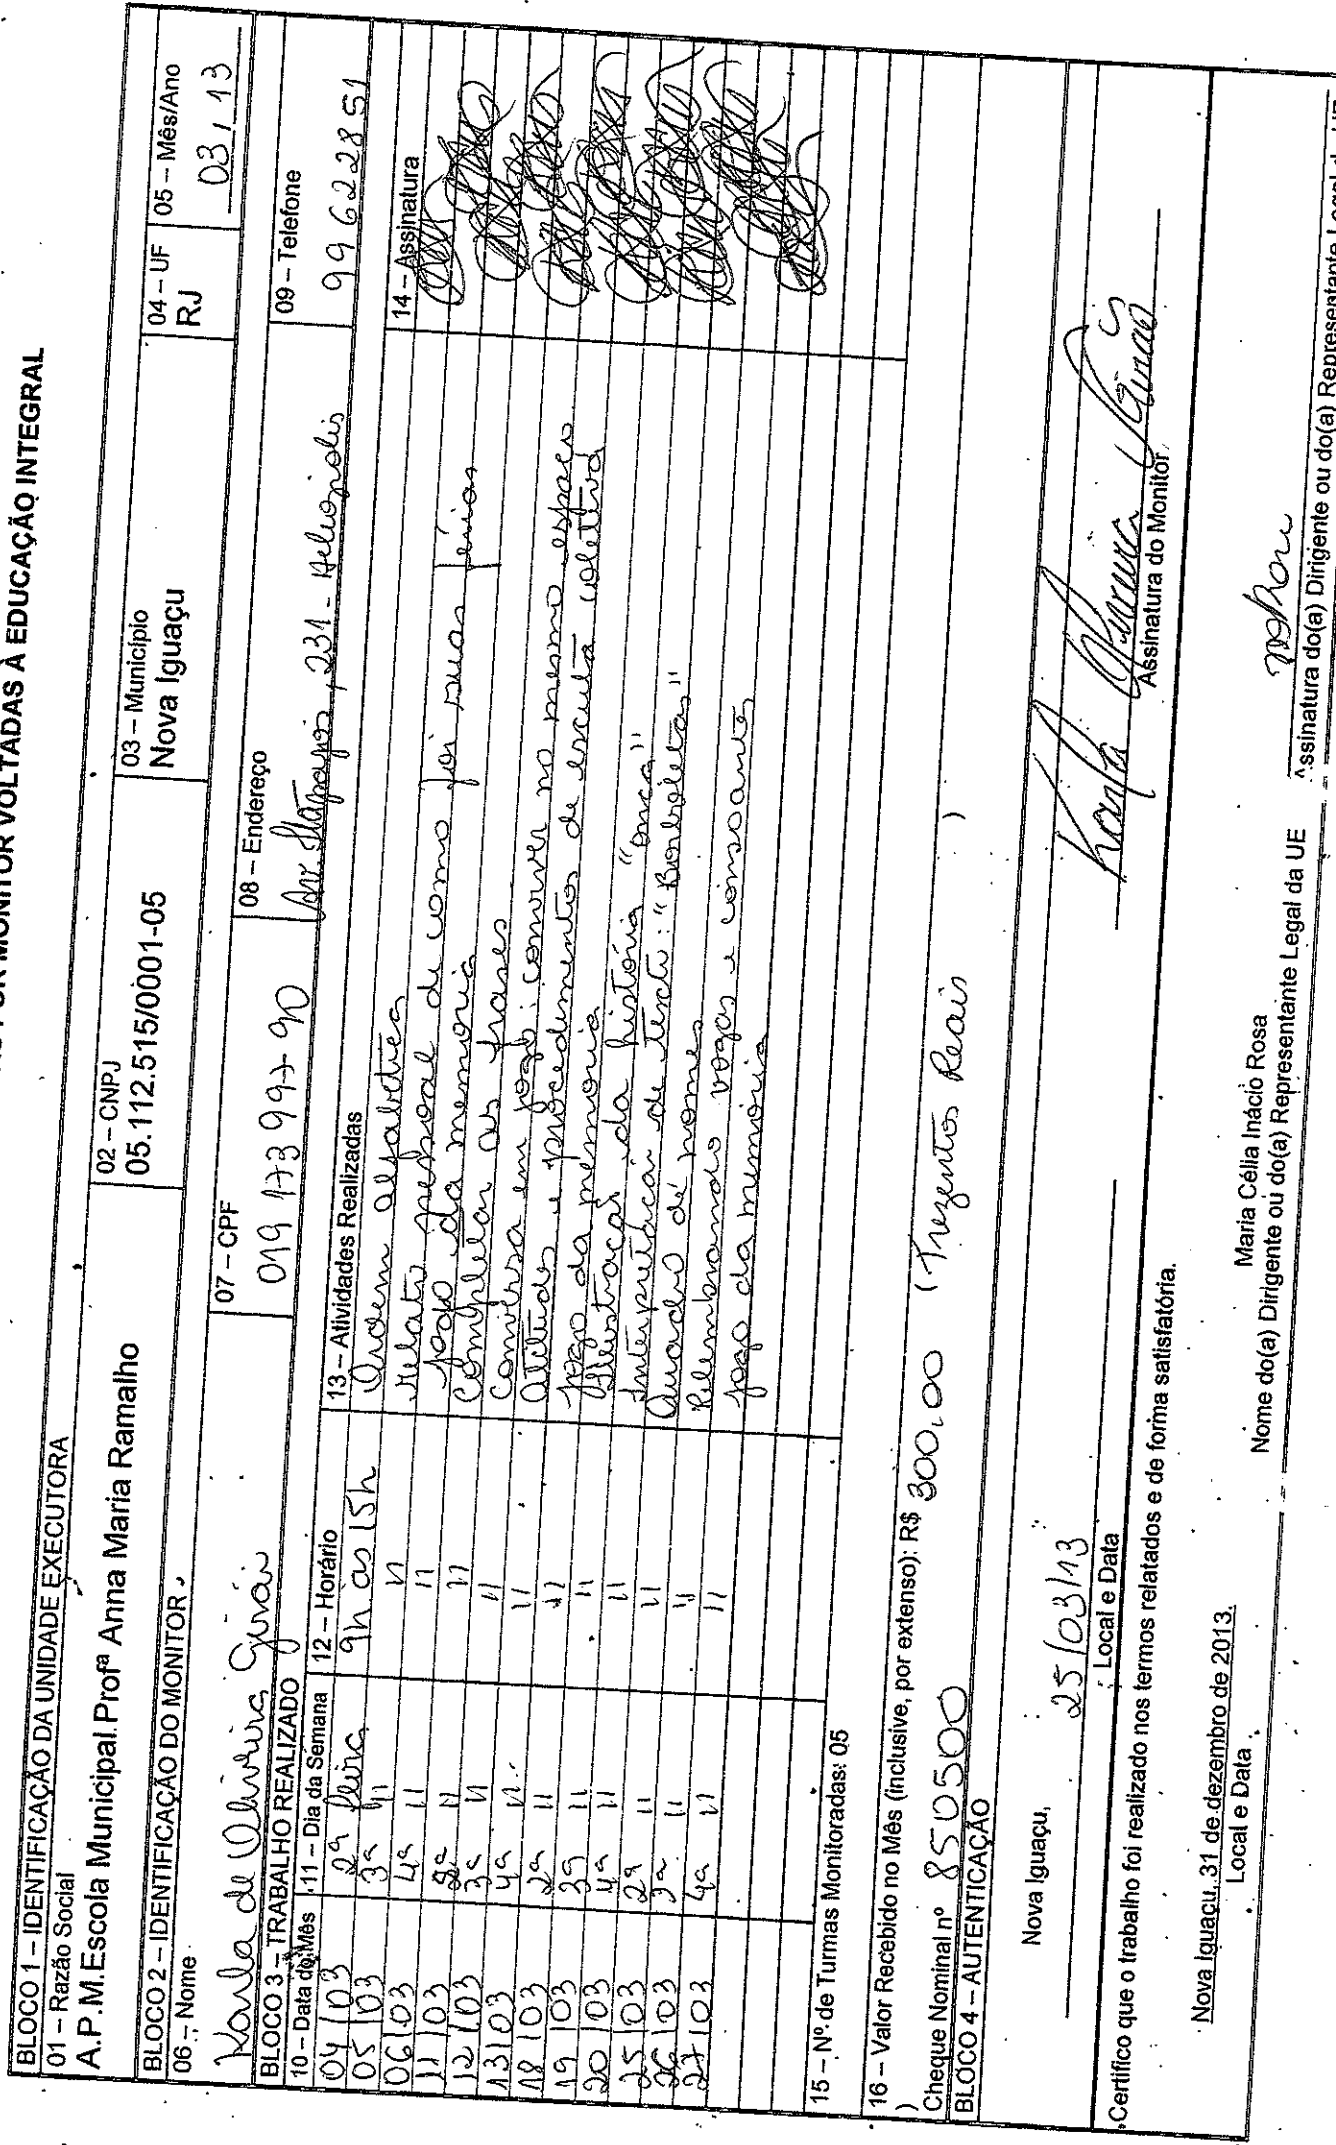 MONITOR VOLTADAS À EDUCAÇÃO INTEGRAL
BLOCO 1 – IDENTIFICAÇÃO DA UNIDADE EXECUTORA
01 – Razão Social
A.P.M.Escola Municipal.Profª Anna Maria Ramalho
02 – CNPJ
05.112.515/0001-05
03 – Município
Nova Iguaçu
04 – UF
RJ
05 – Mês/Ano
03/13
BLOCO 2 – IDENTIFICAÇÃO DO MONITOR
06 – Nome
Karla de Oliveira Girão
07 – CPF
019 173 997 90
08 – Endereço
231 - Heliopolis
09 – Telefone
99622851
BLOCO 3 – TRABALHO REALIZADO
10 – Data do Mês 11 – Dia da Semana 12 – Horário 13 – Atividades Realizadas 14 – Assinatura
04/03 2ª feira 9h as 15h Ordem alfabética
05/03 3ª " " relato pessoal de como foi suas férias
06/03 4ª " " jogo da memoria
11/03 2ª " " Completar as frases
12/03 3ª " " Conversa em jogo: conviver no mesmo espaço
13/03 4ª " " atitudes e procedimentos de escuta coletiva
18/03 2ª " " jogo da memoria
19/03 3ª " " Ilustração da história "onça"
20/03 4ª " " Interpretação de texto: "Borboletas"
25/03 2ª " " Quadro de nomes
26/03 3ª " " Relembrando vogas e consoantes
27/03 4ª " " jogo da memória
15 – Nº de Turmas Monitoradas: 05
16 – Valor Recebido no Mês (inclusive, por extenso): R$ 300,00 (Trezentos Reais
)
)
Cheque Nominal nº 850500
BLOCO 4 – AUTENTICAÇÃO
Nova Iguaçu, 25/03/13
Local e Data
Karla Oliveira Girão
Assinatura do Monitor
Certifico que o trabalho foi realizado nos termos relatados e de forma satisfatória.
Nova Iguaçu, 31 de dezembro de 2013.
Local e Data
Maria Célia Inácio Rosa
Nome do(a) Dirigente ou do(a) Representante Legal da UE
Assinatura do(a) Dirigente ou do(a) Representante Legal da UE